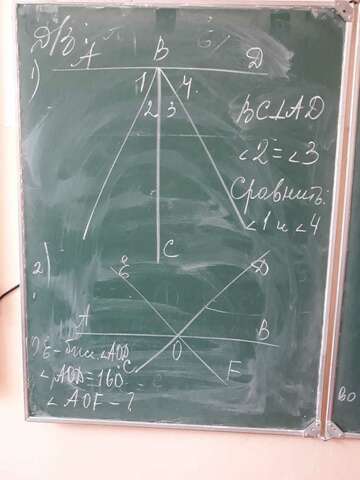 Д/з:
1)
A B D
1 4
2 3
BC⊥AD
∠2=∠3
Сравнить:
∠1 и ∠4
C
2)
E D
A O B
OE - бисс. ∠AOD
∠AOD=160°
C F
∠AOF - ?
во